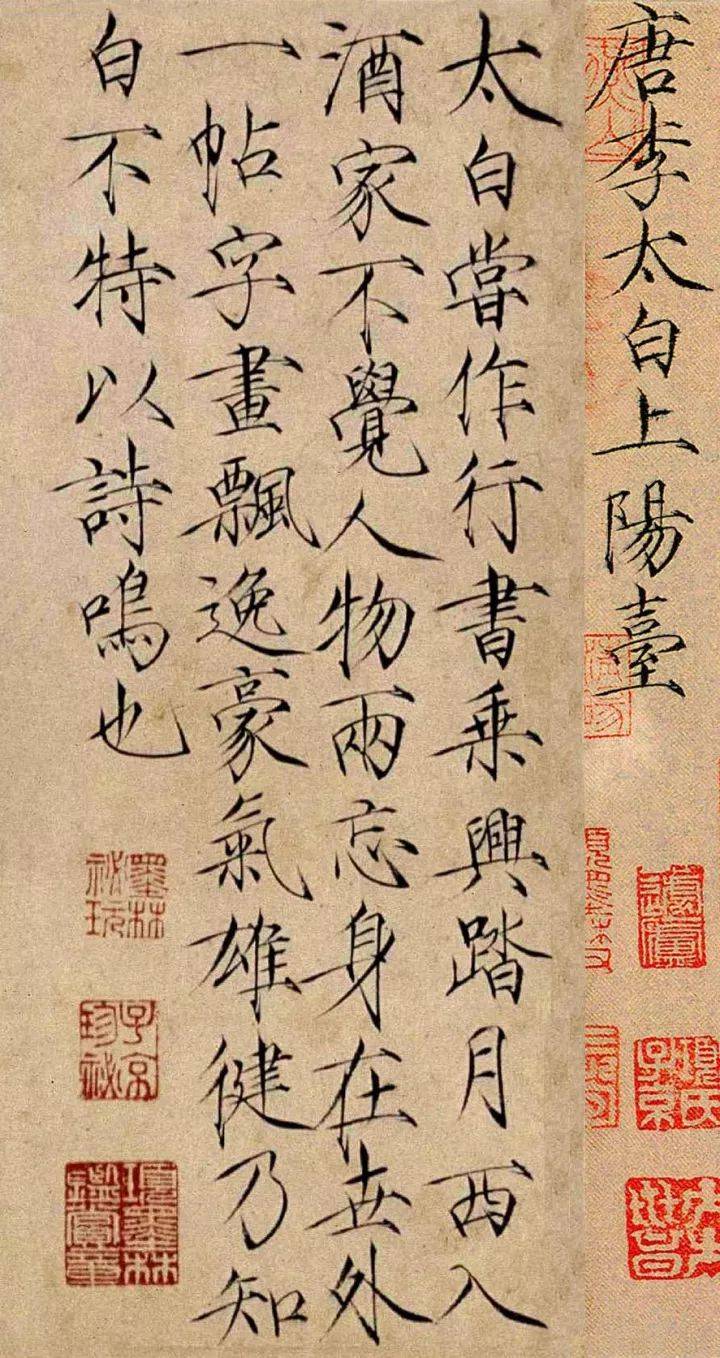 唐李太白上陽臺
太白嘗作行書乗興踏月西入
酒家不覺人物兩忘身在世外
一帖字畫飄逸豪氣雄健乃知
白不特以詩鳴也
墨林祕玩
子京珍祕
項墨林鑑賞章